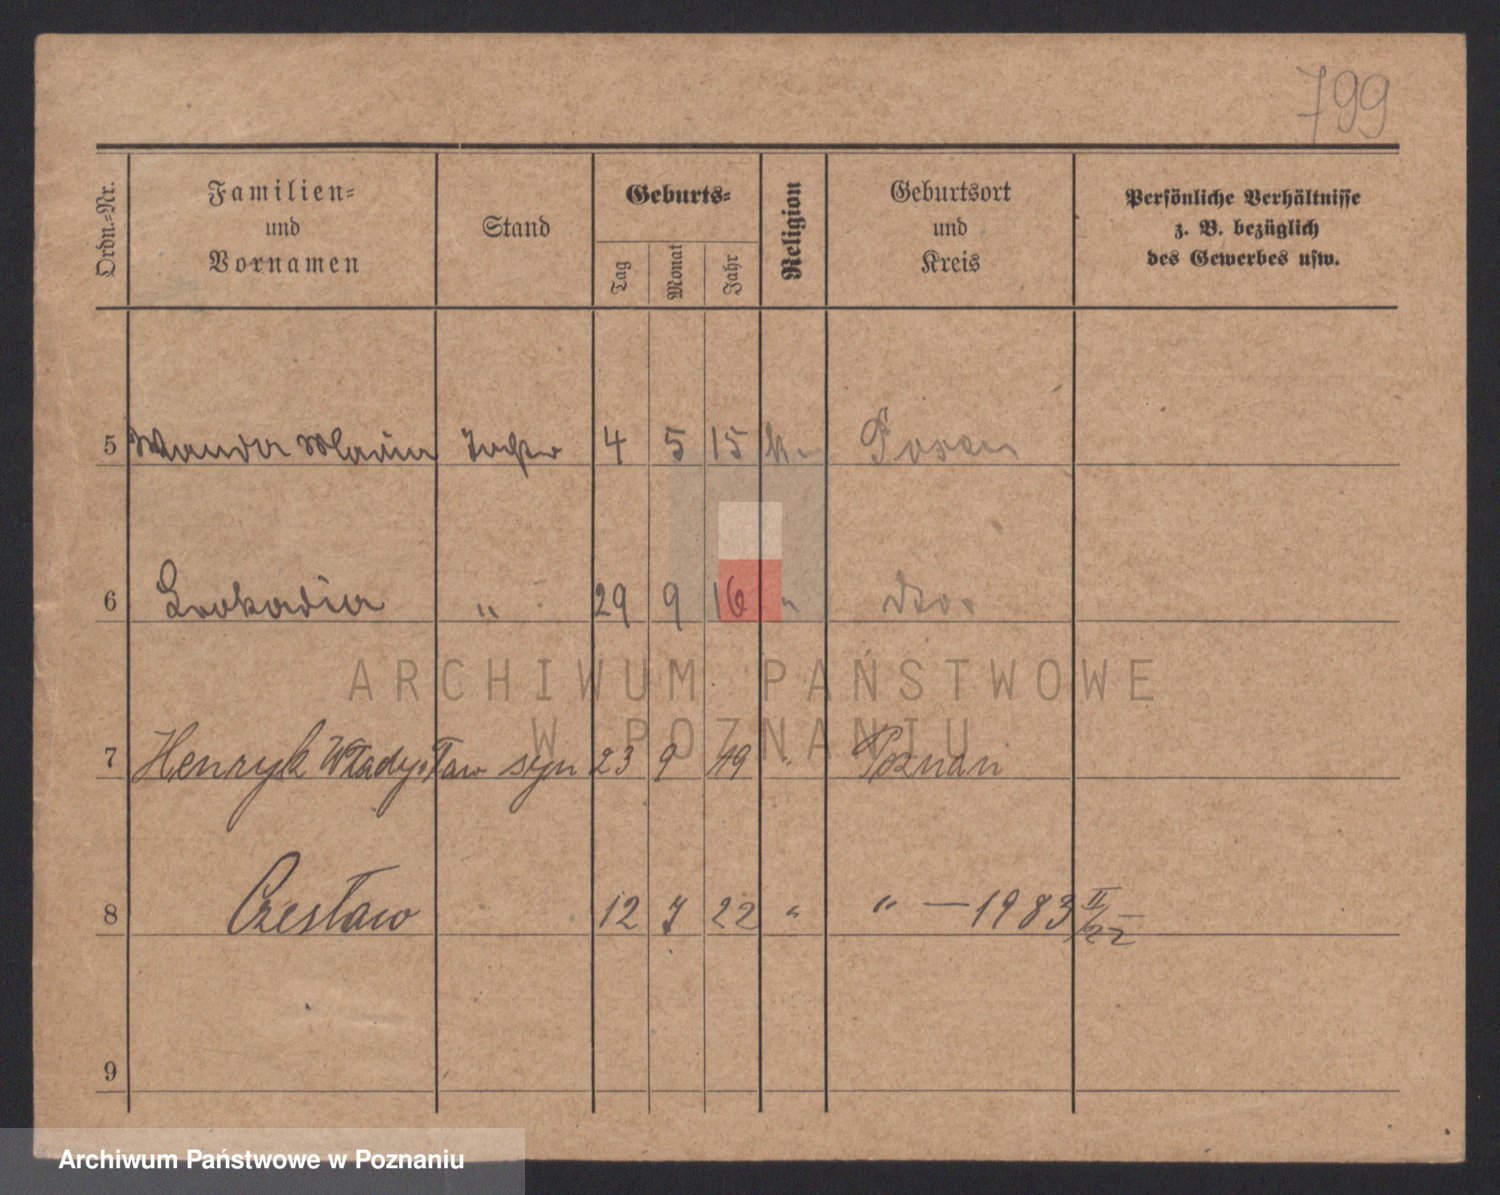 799
Ordn.-Nr.
Familien-
und
Vornamen
Stand
Geburts-
Tag
Monat
Jahr
Religion
Geburtsort
und
Kreis
Persönliche Verhältnisse
z. B. bezüglich
des Gewerbes usw.
5 Wanda Maria Tochter 4 5 15 k. Posen
6 Leokadia " 29 9 16 " dto.
ARCHIWUM PAŃSTWOWE
W POZNANIU
7 Henryk Władysław syn 23 9 19 " Poznań
8 Czesław 12 7 22 " " — 1983 II/22
9
Archiwum Państwowe w Poznaniu